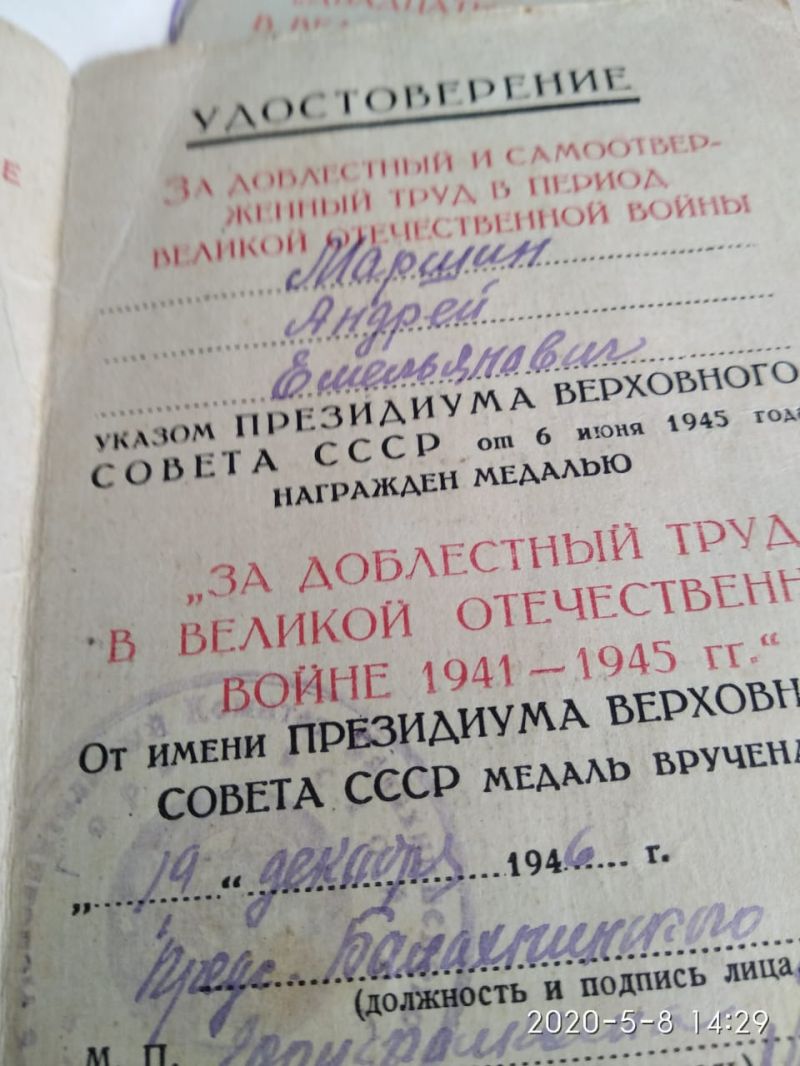 УДОСТОВЕРЕНИЕ
ЗА ДОБЛЕСТНЫЙ И САМООТВЕР-
ЖЕННЫЙ ТРУД В ПЕРИОД
ВЕЛИКОЙ ОТЕЧЕСТВЕННОЙ ВОЙНЫ
Маршин
Андрей
Емельянович
УКАЗОМ ПРЕЗИДИУМА ВЕРХОВНОГО
СОВЕТА СССР от 6 июня 1945 года
НАГРАЖДЕН МЕДАЛЬЮ
„ЗА ДОБЛЕСТНЫЙ ТРУД
В ВЕЛИКОЙ ОТЕЧЕСТВЕНН
ВОЙНЕ 1941—1945 гг.“
От имени ПРЕЗИДИУМА ВЕРХОВН
СОВЕТА СССР МЕДАЛЬ ВРУЧЕНА
„19“ декабря 1946 г.
Пред. Балахнинского
(должность и подпись лица,
М. П.
2020-5-8 14:29